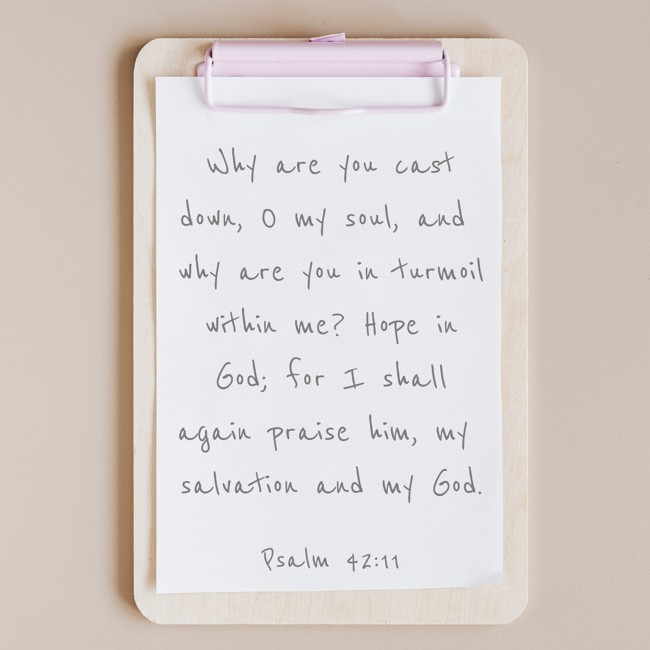 Why are you cast
down, O my soul, and
why are you in turmoil
within me? Hope in
God; for I shall
again praise him, my
salvation and my God.
Psalm 42:11